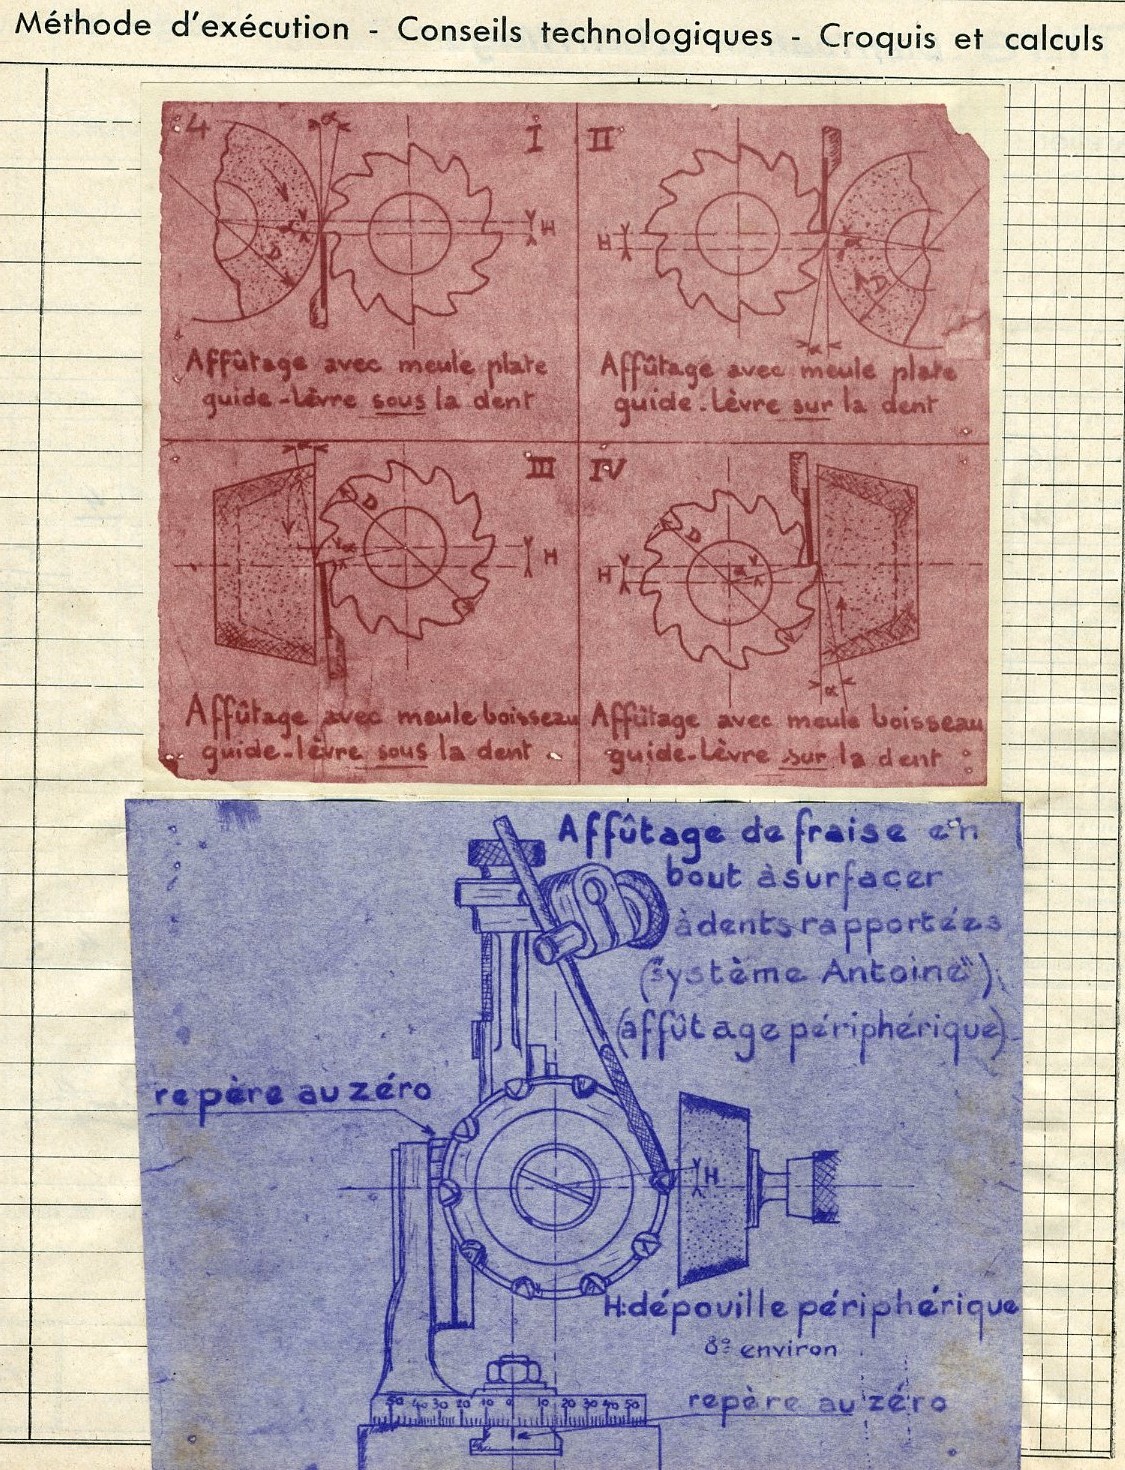 Méthode d'exécution - Conseils technologiques - Croquis et calculs
4
I
II
α
H
D
H
D
α
Affûtage avec meule plate
guide-lèvre sous la dent
Affûtage avec meule plate
guide-lèvre sur la dent
III
IV
D
α
H
D
α
H
α
Affûtage avec meule boisseau
guide-lèvre sous la dent
Affûtage avec meule boisseau
guide-lèvre sur la dent
Affûtage de fraise en
bout à surfacer
à dents rapportées
("système Antoine")
(affûtage périphérique)
repère au zéro
H
H: dépouille périphérique
8° environ
repère au zéro
50 40 30 20 10 0 10 20 30 40 50